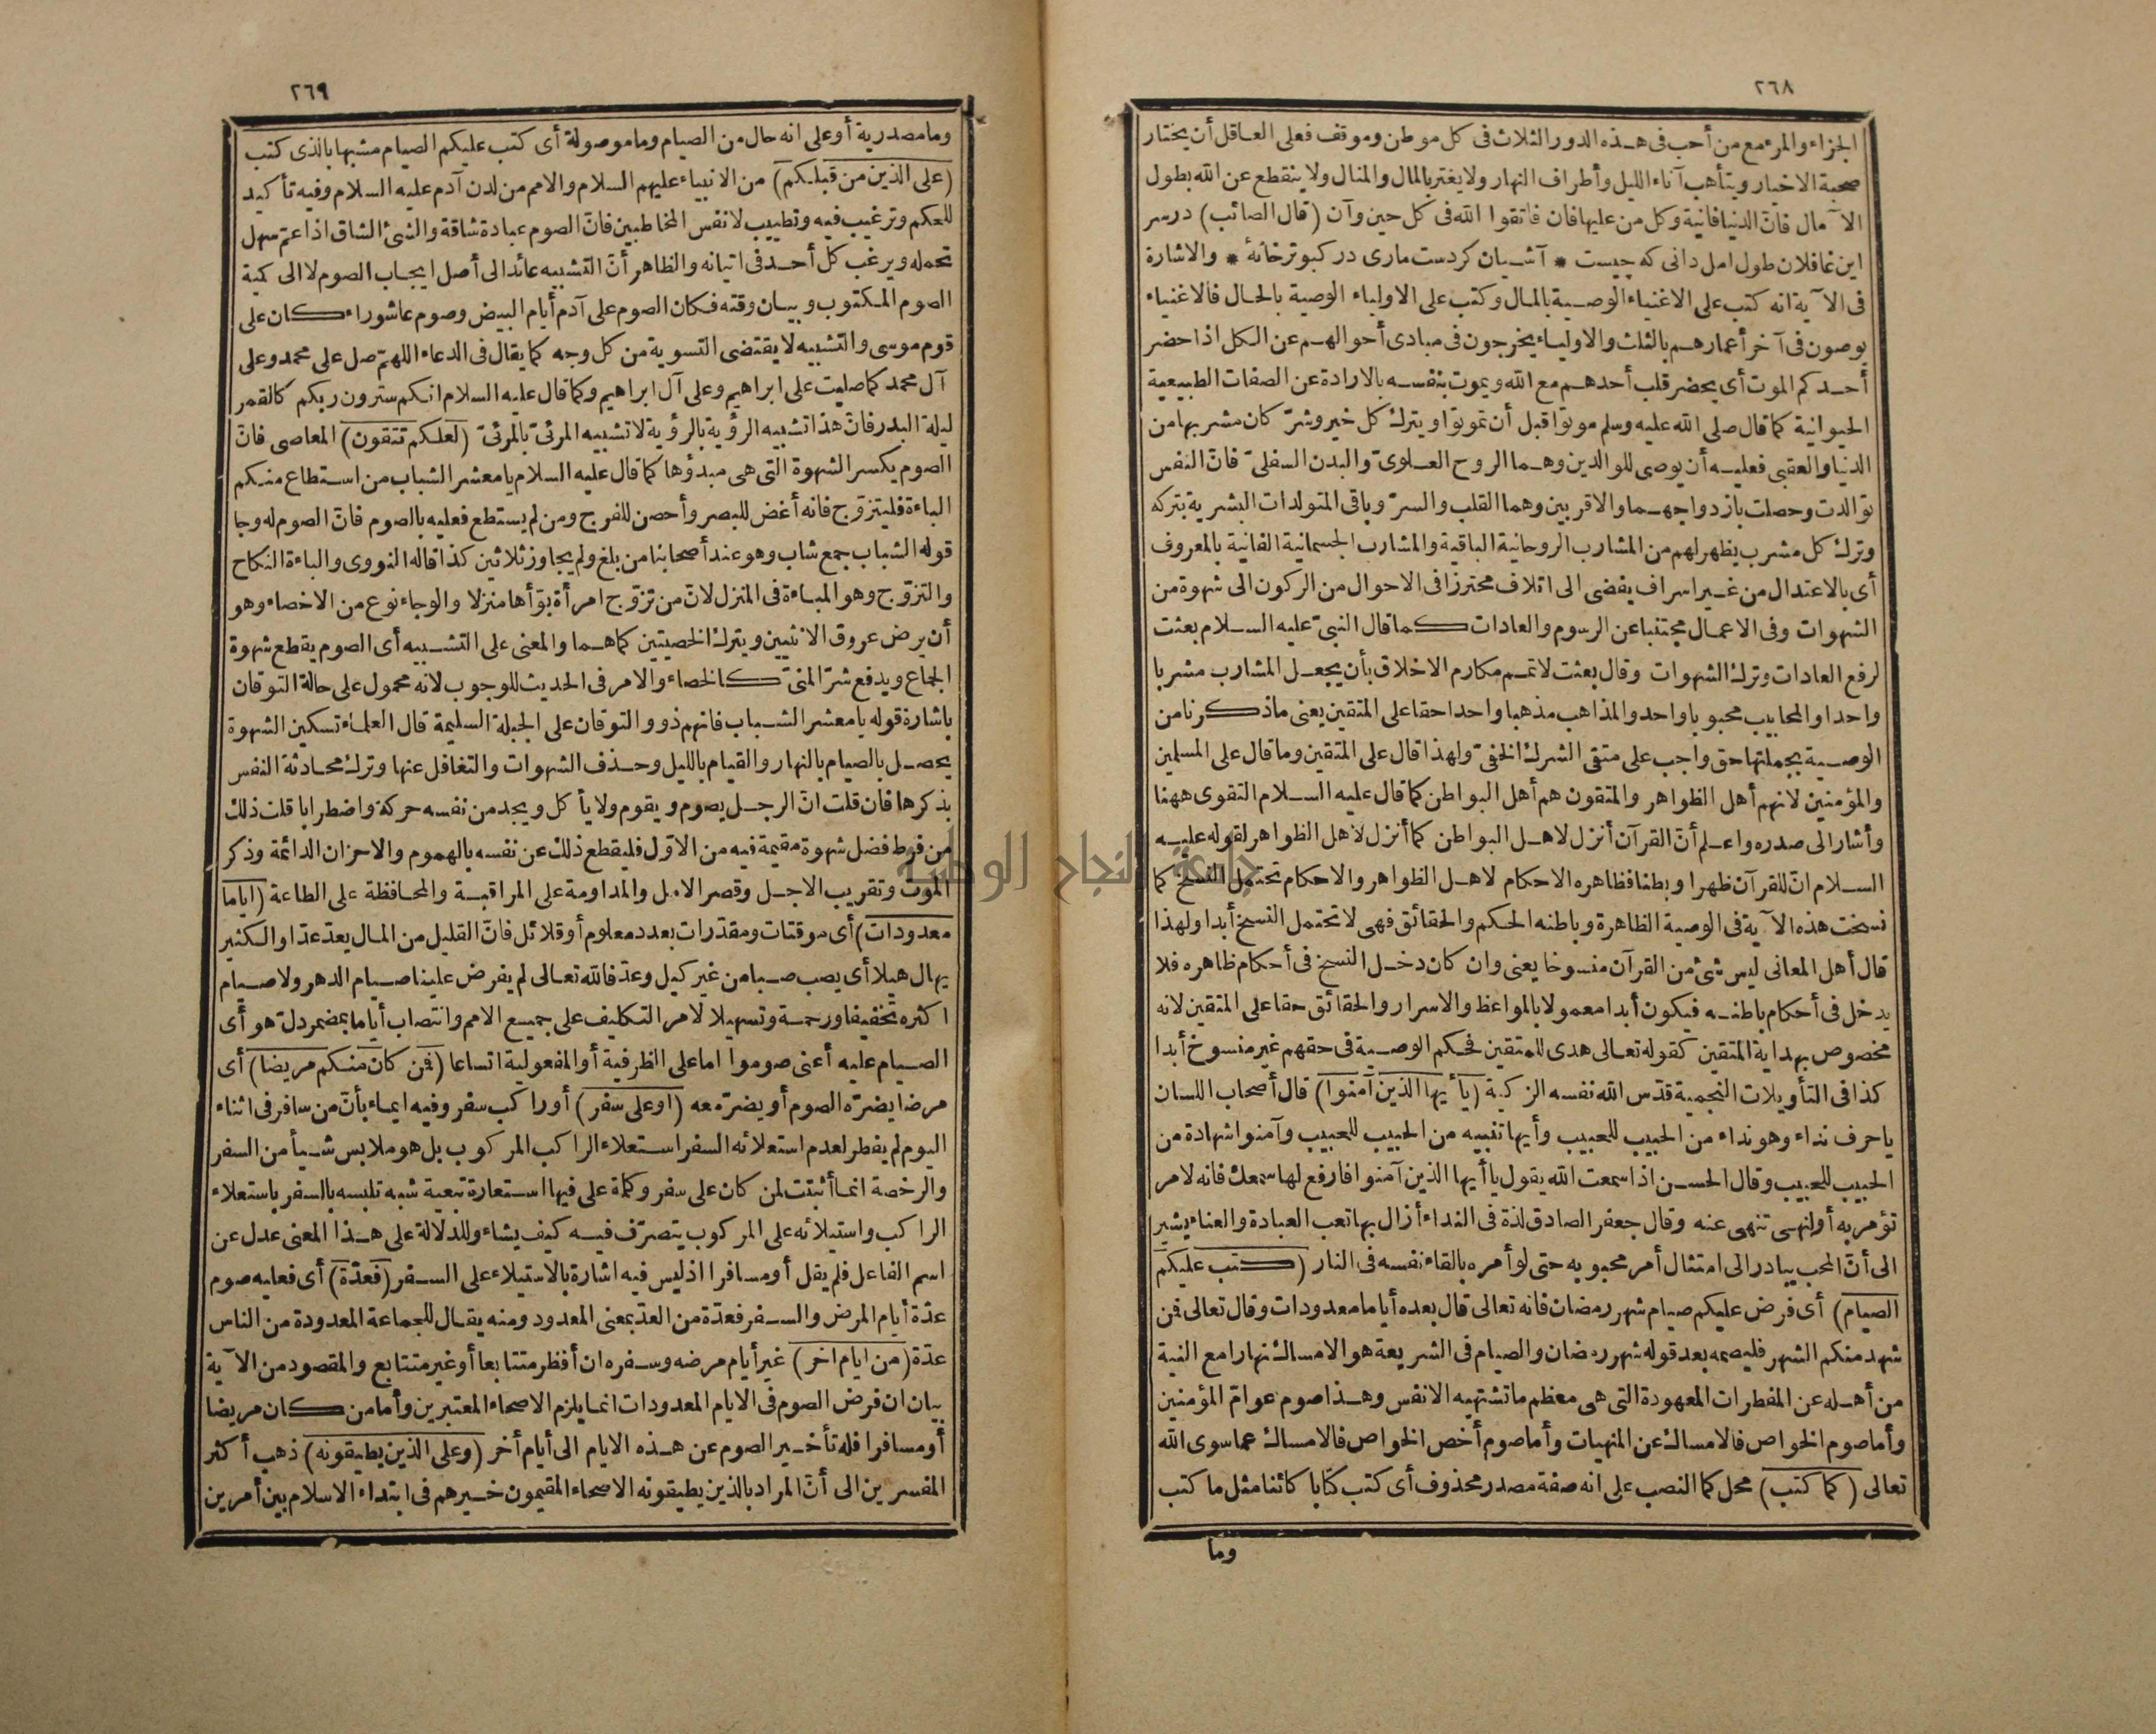 ٢٦٨
الجزاء والمرء مع من أحب فى هذه الدور الثلاث فى كل موطن وموقف فعلى العاقل أن يختار
صحبة الاخيار ويتأهب آناء الليل وأطراف النهار ولا يغتر بالمال والمنال ولا ينقطع عن الله بطول
الآمال فانّ الدنيا فانية وكل من عليها فان فاتقوا الله فى كل حين وآن (قال الصائب) درسر
اين غافلان طول امل دانى كه چيست * آشيان كردست مارى در كبوتر خانۀ * والاشارة
فى الآية انه كتب على الاغنياء الوصية بالمال وكتب على الاولياء الوصية بالحال فالاغنياء
يوصون فى آخر أعمارهم بالثلث والاولياء يخرجون فى مبادى أحوالهم عن الكل اذا حضر
أحدكم الموت أى يحضر قلب أحدهم مع الله ويموت بنفسه بالارادة عن الصفات الطبيعية
الحيوانية كما قال صلى الله عليه وسلم موتوا قبل أن تموتوا ويترك كل خير وشرّ كان مشربها من
الدنيا والعقبى فعليه أن يوصى للوالدين وهما الروح العلوىّ والبدن السفلىّ فانّ النفس
توالدت وحصلت بازدواجهما والاقربين وهما القلب والسرّ وباقى المتولدات البشرية بتركه
وترك كل مشرب يظهر لهم من المشارب الروحانية الباقية والمشارب الجسمانية الفانية بالمعروف
أى بالاعتدال من غير اسراف يفضى الى اتلاف محترزا فى الاحوال من الركون الى شهوة من
الشهوات وفى الاعمال مجتنبا عن الرسوم والعادات كما قال النبىّ عليه السلام بعثت
لرفع العادات وترك الشهوات وقال بعثت لاتمم مكارم الاخلاق بأن يجعل المشارب مشربا
واحدا والمحابيب محبوبا واحد والمذاهب مذهبا واحدا حقا على المتقين يعنى ماذكرنا من
الوصية بجملتها حق واجب على متقى الشرك الخفىّ ولهذا قال على المتقين وما قال على المسلمين
والمؤمنين لانهم أهل الظواهر والمتقون هم أهل البواطن كما قال عليه السلام التقوى ههنا
وأشار الى صدره واعلم أنّ القرآن أنزل لاهل البواطن كما أنزل لاهل الظواهر لقوله عليه
السلام انّ للقرآن ظهرا وبطنا فظاهره الاحكام لاهل الظواهر والاحكام تحتمل النسخ كما
نسخت هذه الآية فى الوصية الظاهرة وباطنه الحكم والحقائق فهى لا تحتمل النسخ أبدا ولهذا
قال أهل المعانى ليس شئ من القرآن منسوخا يعنى وان كان دخل النسخ فى أحكام ظاهره فلا
يدخل فى أحكام باطنه فيكون أبدا معمولا بالمواعظ والاسرار والحقائق حقا على المتقين لانه
مخصوص بهداية المتقين كقوله تعالى هدى للمتقين فحكم الوصية فى حقهم غير منسوخ أبدا
كذا فى التأويلات النجمية قدّس الله نفسه الزكية (يا أيها الذين آمنوا) قال أصحاب اللسان
يا حرف نداء وهو نداء من الحبيب للحبيب وأيها تنبيه من الحبيب للحبيب وآمنوا شهادة من
الحبيب للحبيب وقال الحسن اذا سمعت الله يقول يا أيها الذين آمنوا فارفع لها سمعك فانه لامر
تؤمر به أولنهى تنهى عنه وقال جعفر الصادق لذة فى النداء أزال بها تعب العبادة والعناء يشير
الى أنّ المحب يبادر الى امتثال أمر محبوبه حتى لو أمره بالقاء نفسه فى النار (كتب عليكم
الصيام) أى فرض عليكم صيام شهر رمضان فانه تعالى قال بعده أياما معدودات وقال تعالى فمن
شهد منكم الشهر فليصمه بعد قوله شهر رمضان والصيام فى الشريعة هو الامساك نهارا مع النية
من أهله عن المفطرات المعهودة التى هى معظم ما تشتهيه الانفس وهذا صوم عوامّ المؤمنين
وأما صوم الخواص فالامساك عن المنهيات وأما صوم أخص الخواص فالامساك عما سوى الله
تعالى (كما كتب) محل كما النصب على انه صفة مصدر محذوف أى كتب كتابا كائنا مثل ما كتب
وما
٢٦٩
وما مصدرية أو على انه حال من الصيام وما موصولة أى كتب عليكم الصيام مشبها بالذى كتب
(على الذين من قبلكم) من الانبياء عليهم السلام والامم من لدن آدم عليه السلام وفيه تأكيد
للحكم وترغيب فيه وتطييب لانفس المخاطبين فانّ الصوم عبادة شاقة والشئ الشاق اذا عمّ سهل
تحمله ويرغب كل أحد فى اتيانه والظاهر أنّ التشبيه عائد الى أصل ايجاب الصوم لا الى كمية
الصوم المكتوب وبيان وقته فكان الصوم على آدم أيام البيض وصوم عاشوراء كان على
قوم موسى والتشبيه لا يقتضى التسوية من كل وجه كما يقال فى الدعاء اللهمّ صل على محمد وعلى
آل محمد كما صليت على ابراهيم وعلى آل ابراهيم وكما قال عليه السلام انكم سترون ربكم كالقمر
ليلة البدر فانّ هذا تشبيه الرؤية بالرؤية لا تشبيه المرئىّ بالمرئىّ (لعلكم تتقون) المعاصى فانّ
الصوم يكسر الشهوة التى هى مبدؤها كما قال عليه السلام يا معشر الشباب من استطاع منكم
الباءة فليتزوّج فانه أغض للبصر وأحصن للفرج ومن لم يستطع فعليه بالصوم فانّ الصوم له وجا
قوله الشباب جمع شاب وهو عند أصحابنا من بلغ ولم يجاوز ثلاثين كذا قاله النووى والباءة النكاح
والتزوّج وهو المباءة فى المنزل لانّ من تزوّج امرأة بوّأها منزلا والوجاء نوع من الاخصاء وهو
أن يرض عروق الانثيين ويترك الخصيتين كما هما والمعنى على التشبيه أى الصوم يقطع شهوة
الجماع ويدفع شرّ المنىّ كالخصاء والامر فى الحديث للوجوب لانه محمول على حالة التوقان
باشارة قوله يا معشر الشباب فانهم ذوو التوقان على الجبلة السليمة قال العلماء تسكين الشهوة
يحصل بالصيام بالنهار والقيام بالليل وحذف الشهوات والتغافل عنها وترك محادثة النفس
بذكرها فان قلت انّ الرجل يصوم ويقوم ولا يأكل ويجد من نفسه حركة واضطرابا قلت ذلك
من فرط فضل شهوة مقيمة فيه من الاوّل فليقطع ذلك عن نفسه بالهموم والاحزان الدائمة وذكر
الموت وتقريب الاجل وقصر الامل والمداومة على المراقبة والمحافظة على الطاعة (اياما
معدودات) أى موقتات ومقدّرات بعدد معلوم أو قلائل فانّ القليل من المال يعدّ عدّا والكثير
يهال هيلا أى يصب صبا من غير كيل وعدّ فالله تعالى لم يفرض علينا صيام الدهر ولا صيام
اكثره تخفيفا ورحمة وتسهيلا لامر التكليف على جميع الامم وانتصاب أياما بمضمر دلّ هو أى
الصيام عليه أعنى صوموا اما على الظرفية أو المفعولية اتساعا (فمن كان منكم مريضا) أى
مرضا يضرّه الصوم أو يضرّ معه (او على سفر) أو راكب سفر وفيه ايماء بأنّ من سافر فى اثناء
اليوم لم يفطر لعدم استعلائه السفر استعلاء الراكب المركوب بل هو ملابس شيأ من السفر
والرخصة انما أثبتت لمن كان على سفر وكلمة على فيها استعارة تبعية شبه تلبسه بالسفر باستعلاء
الراكب واستيلائه على المركوب يتصرّف فيه كيف يشاء وللدلالة على هذا المعنى عدل عن
اسم الفاعل فلم يقل أو مسافرا اذ ليس فيه اشارة بالاستيلاء على السفر (فعدّة) أى فعليه صوم
عدّة أيام المرض والسفر فعدّة من العدّ بمعنى المعدود ومنه يقال للجماعة المعدودة من الناس
عدّة (من ايام اخر) غير أيام مرضه وسفره ان أفطر متتابعا أو غير متتابع والمقصود من الآية
بيان ان فرض الصوم فى الايام المعدودات انما يلزم الاصحاء المعتبرين وأما من كان مريضا
أو مسافرا فله تأخير الصوم عن هذه الايام الى أيام أخر (وعلى الذين يطيقونه) ذهب أكثر
المفسرين الى أنّ المراد بالذين يطيقونه الاصحاء المقيمون خيرهم فى ابتداء الاسلام بين أمرين
جامعة النجاح الوطنية